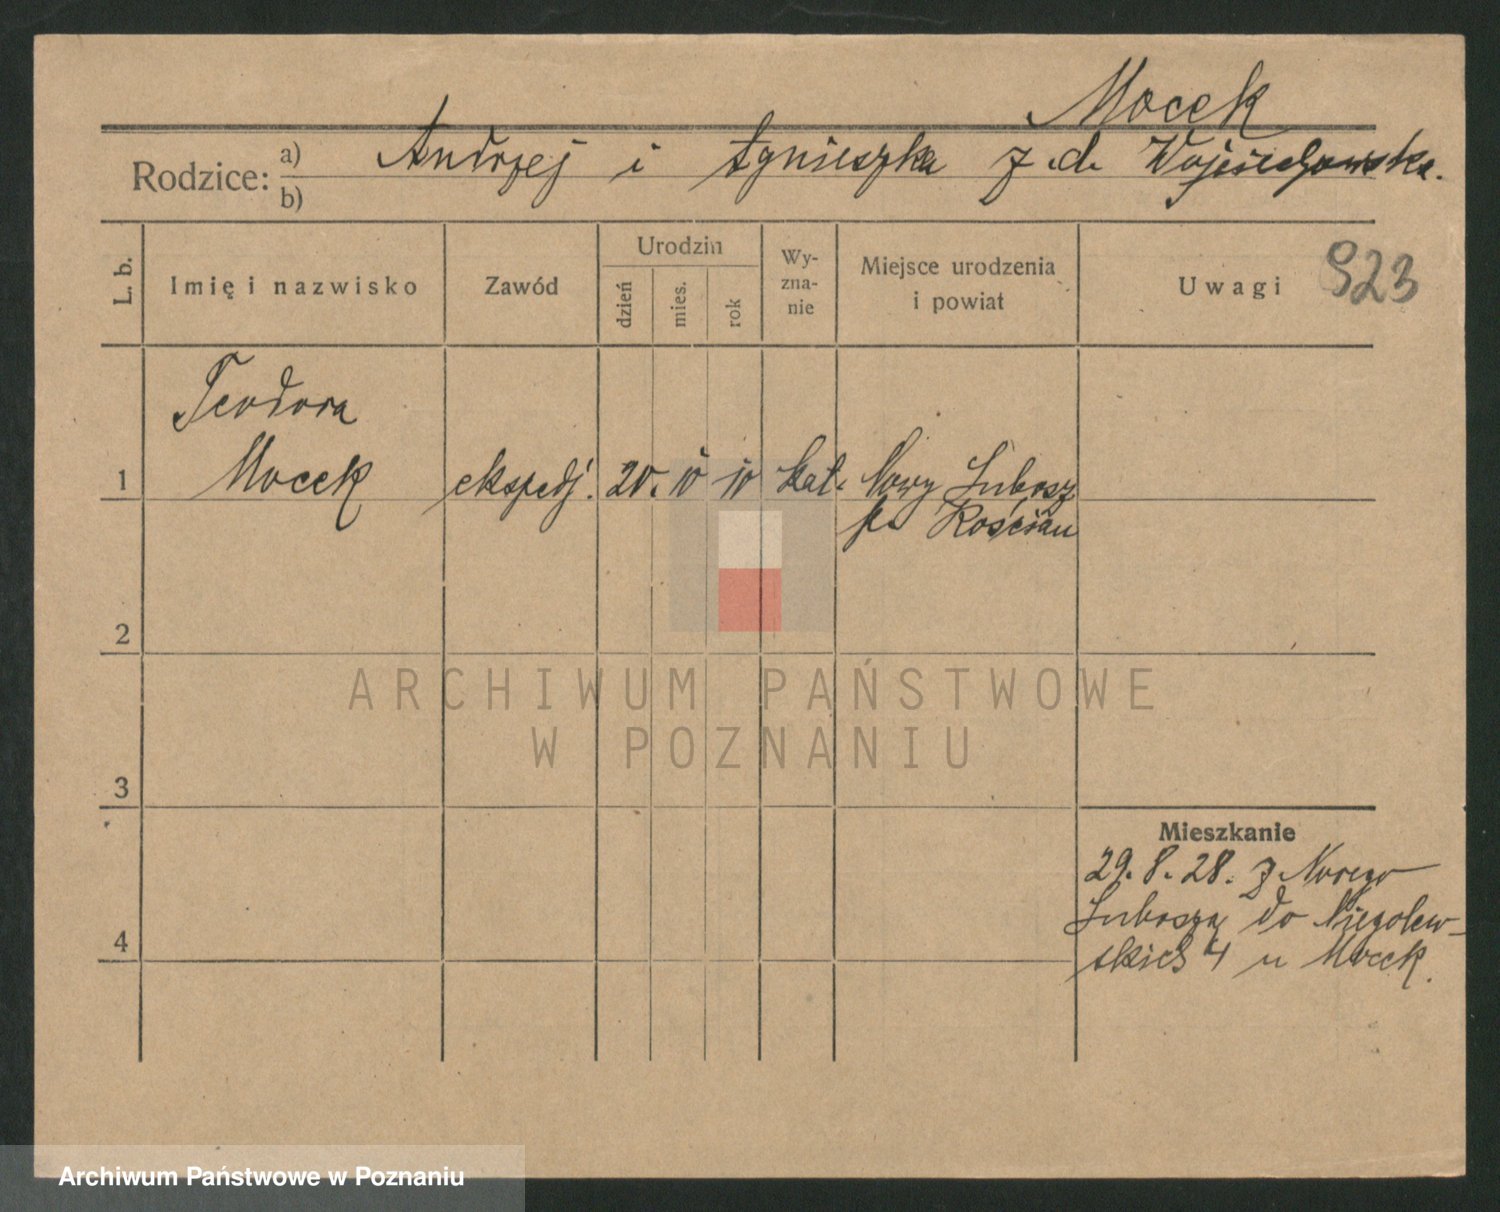 Mocek
Rodzice: a) Andrzej i Agnieszka z d. Wojciechowska.
b)
L. b. Imię i nazwisko Zawód Urodzin dzień mies. rok Wy-zna-nie Miejsce urodzenia i powiat Uwagi 923
Teodora
1 Mocek ekspedj. 20. kat. Nowy Lubosz
p. Kościan
2
3
Mieszkanie
29. 8. 28. z Nowego
Lubosza do Niegolew-
4 skich 4 u Mocek.
ARCHIWUM PAŃSTWOWE
W POZNANIU
Archiwum Państwowe w Poznaniu